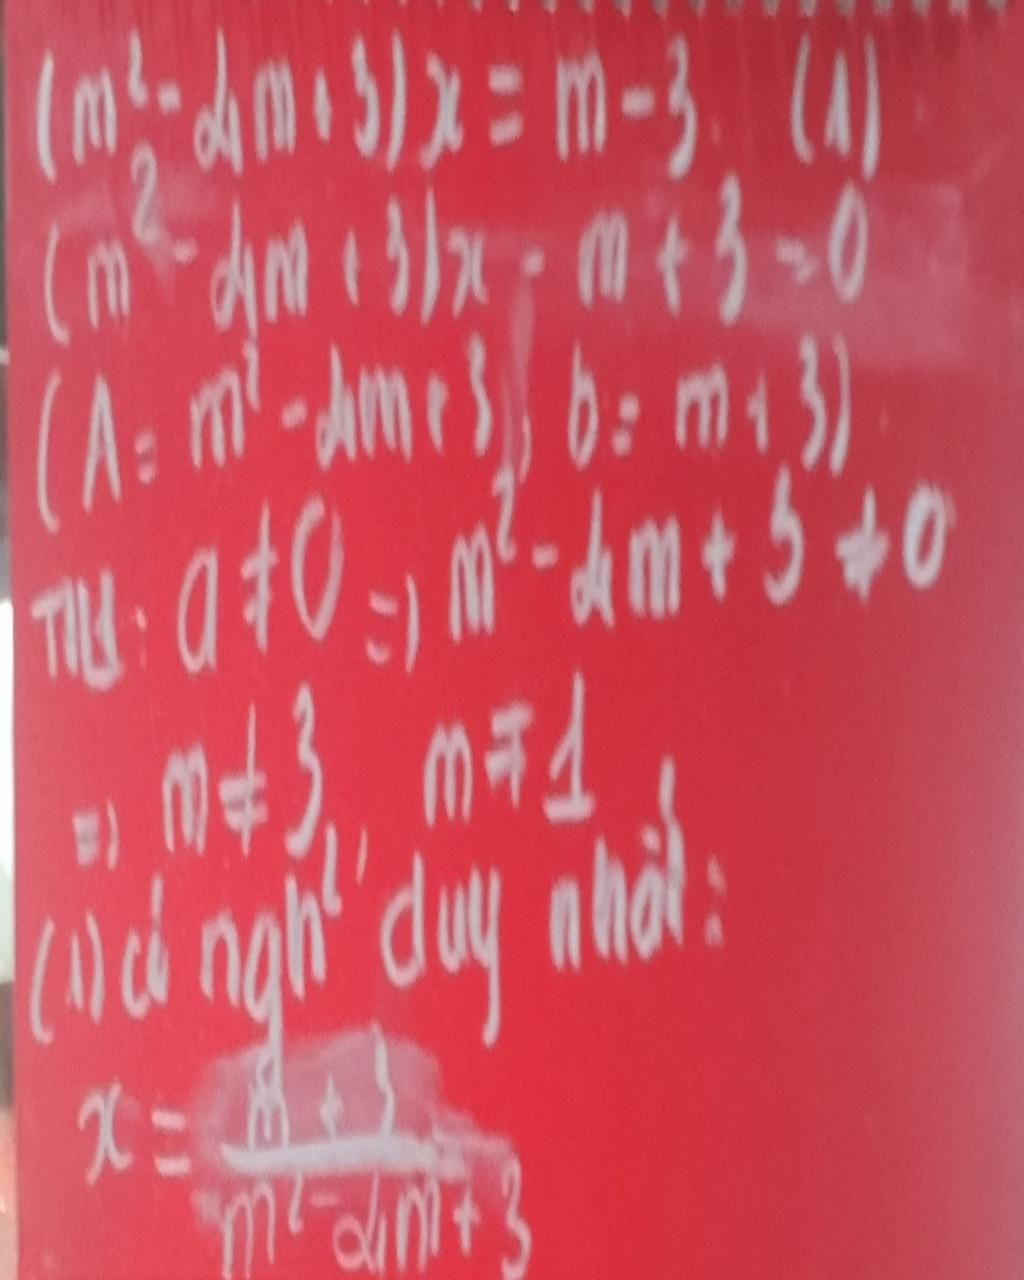 (m² - 4m + 3) x = m - 3 (1)
(m² - 4m + 3) x - m + 3 = 0
(A = m² - 4m + 3, b = m + 3)
TH1: a ≠ 0 => m² - 4m + 3 ≠ 0
=> m ≠ 3, m ≠ 1
(1) có ngh² duy nhất:
x = m + 3 / m² - 4m + 3